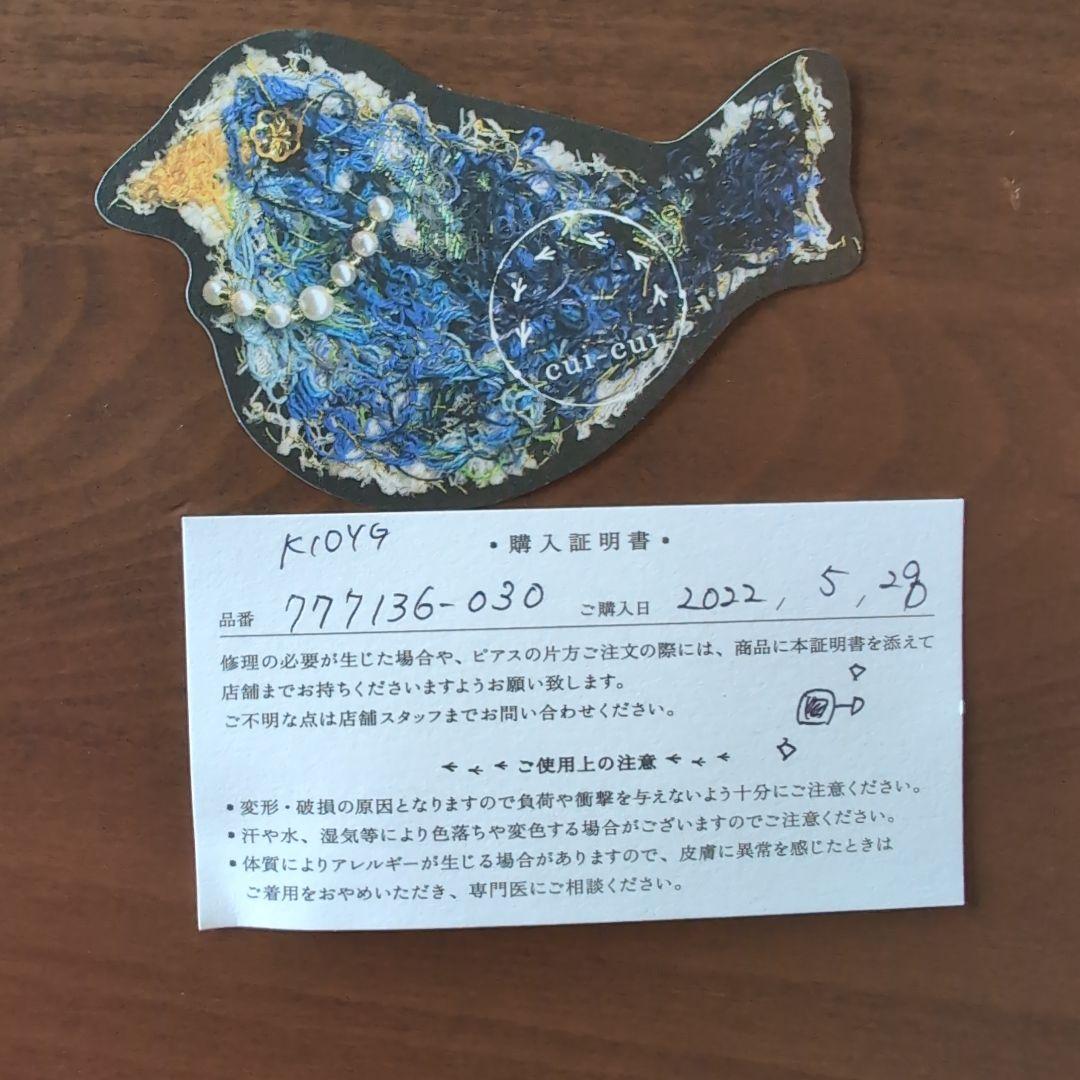 cui-cui
K10YG
・購入証明書・
品番 777136-030 ご購入日 2022, 5, 28
修理の必要が生じた場合や、ピアスの片方ご注文の際には、商品に本証明書を添えて
店舗までお持ちくださいますようお願い致します。
ご不明な点は店舗スタッフまでお問い合わせください。
ご使用上の注意
・変形・破損の原因となりますので負荷や衝撃を与えないよう十分にご注意ください。
・汗や水、湿気等により色落ちや変色する場合がございますのでご注意ください。
・体質によりアレルギーが生じる場合がありますので、皮膚に異常を感じたときは
ご着用をおやめいただき、専門医にご相談ください。